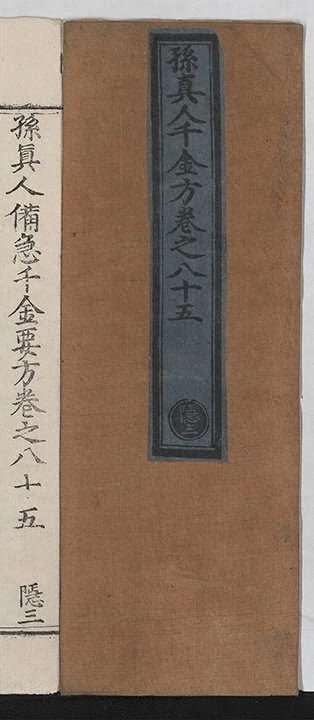 孫真人千金方卷之八十五
隱三
孫眞人備急千金要方卷之八十五
隱三